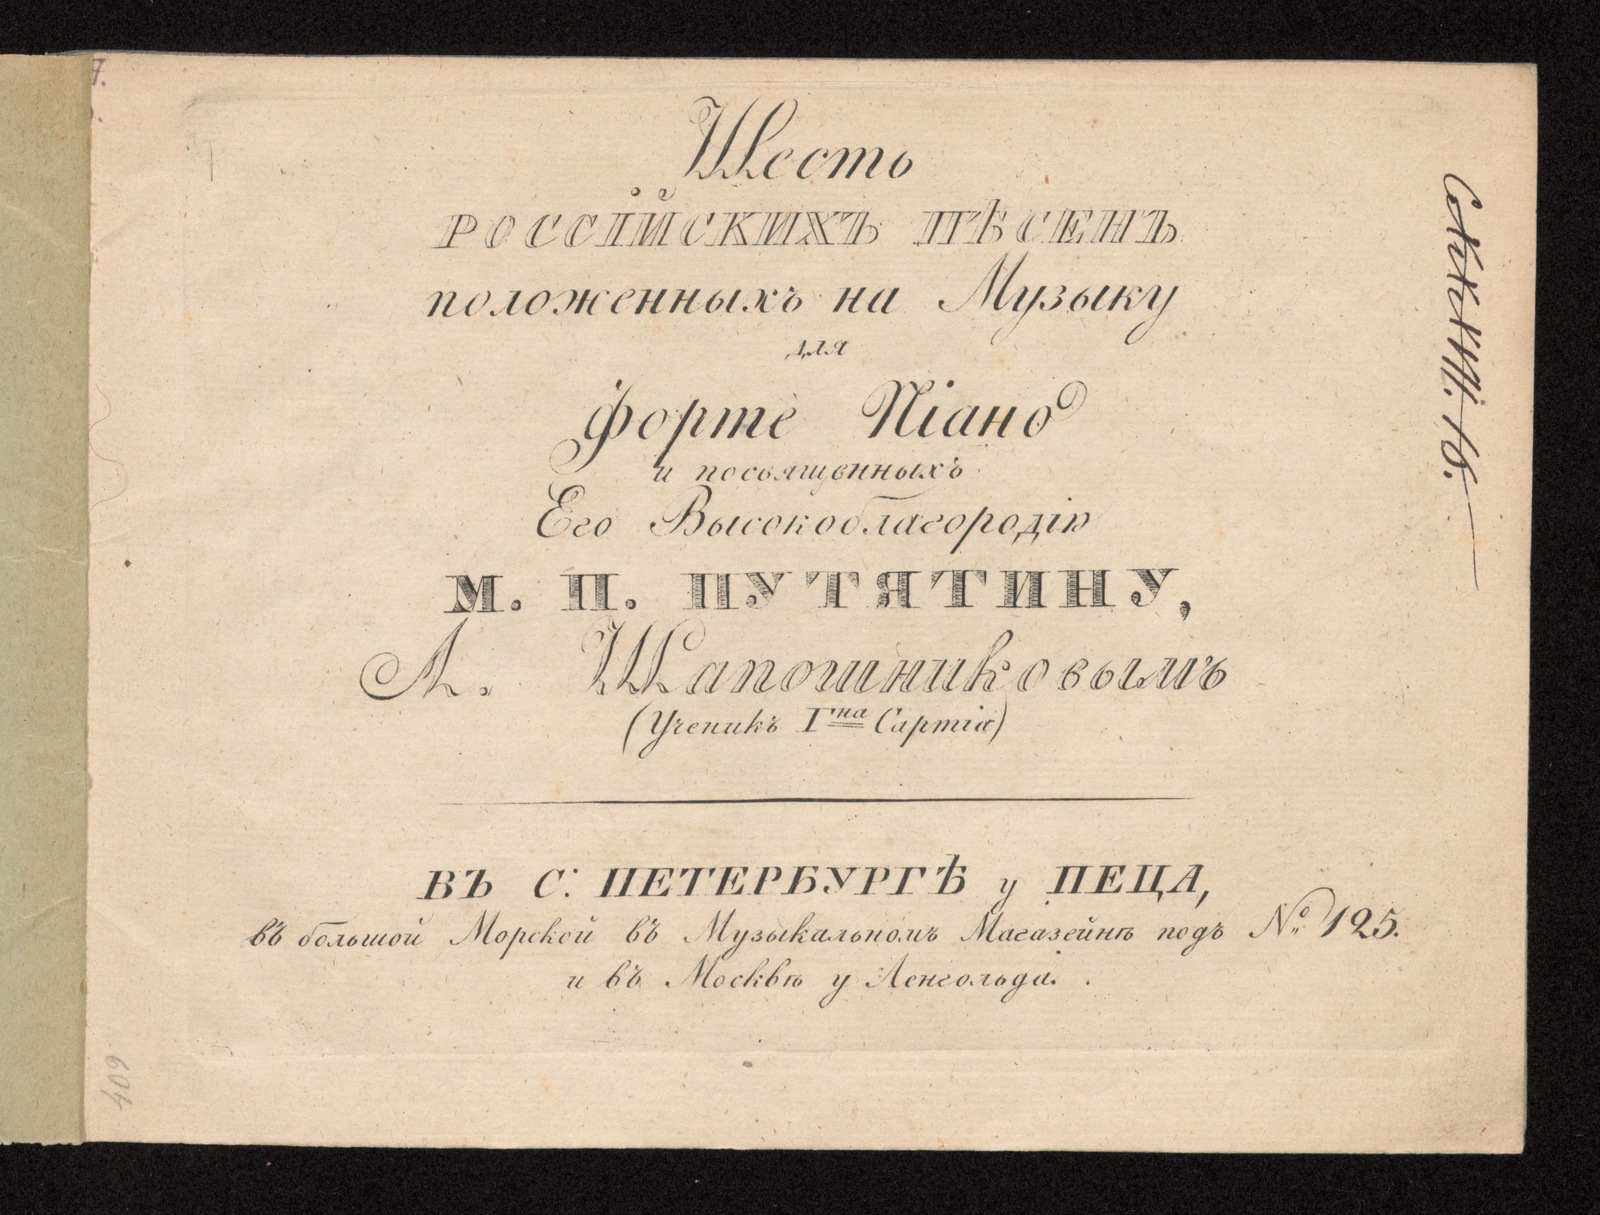 Шесть
РОССІЙСКИХЪ ПѢСЕНЪ
положенныхъ на Музыку
для
Форте Піано
и посвященныхъ
Его Высокоблагородію
М. П. ПУТЯТИНУ,
А. Шапошниковымъ
(Ученикъ Гна Сартія)
ВЪ С. ПЕТЕРБУРГѢ у ПЕЦА,
въ большой Морской въ Музыкальномъ Магазейнѣ подъ № 125.
и въ Москвѣ у Ленгольда.
409